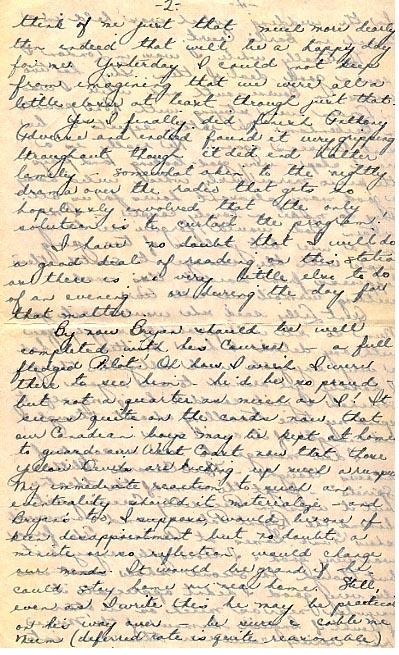 -2-
think of me just that much more dearly
then indeed that will be a happy day
for me. Yesterday I could not keep
from imagining that we were all a
little closer at heart through just that.
Yes, I finally did finish Anthony
Adverse and indeed found it very gripping
throughout though it did end rather
lamely somewhat akin to the nightly
drama over the radio that gets so
hopelessly involved that the only
solution is to curtail the program!
I have no doubt that I will do
a good deal of reading on this station
as there is very little else to do
of an evening or during the day for
that matter.
By now Bryan should be well
completed with his course - a full
fledged Pilot. Oh how I wish I were
there to see him - he'd be so proud -
but not a quarter as much as I! It
seems quite on the cards now that
our Canadian boys may be kept at home
to guard our West Coast now that those
yellow are kicking up such a rumpus
My immediate reaction to such an
eventuality should it materialize - and
Bryan's too, I suppose, would be one of
keen disappointment but no doubt a
minute or so reflection would change
our minds. It would be grand if he
could stay home or near home. Still
even as I write this he may be practically
on his way over - be sure & cable me
Mum (deferred rate is quite reasonable)